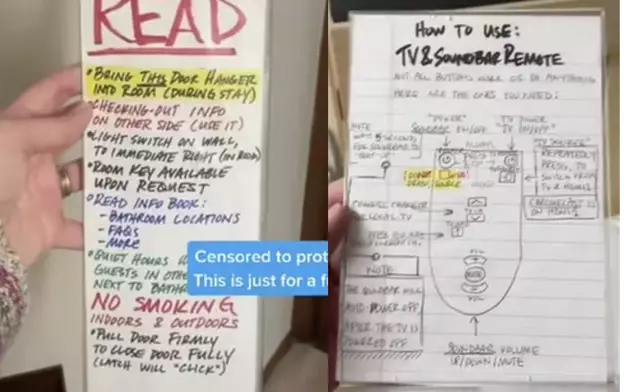 READ
• BRING THIS DOOR HANGER
INTO ROOM (DURING STAY)
• CHECKING-OUT INFO
ON OTHER SIDE (USE IT)
• LIGHT SWITCH ON WALL,
TO IMMEDIATE RIGHT (IN ROOM)
• ROOM KEY AVAILABLE
UPON REQUEST
• READ INFO BOOK:
- BATHROOM LOCATIONS
- FAQS
- MORE
• QUIET HOURS
GUESTS IN
NEXT TO
NO SMOKING
INDOORS & OUTDOORS
• PULL DOOR FIRMLY
TO CLOSE DOOR FULLY
(LATCH WILL "CLICK")
Censored to prot
This is just for a f
HOW TO USE:
TV & SOUNDBAR REMOTE
NOT ALL BUTTONS WORK OR DO ANYTHING
HERE ARE THE ONES YOU NEED:
"POWER"
SOUNDBAR ON/OFF
TV POWER
"ON/OFF"
NOTE
SECONDS
FOR SOUNDBAR TO
"TV SOURCE"
REPEATEDLY
PRESS, TO
SWITCH FROM
TV & HDMI 1
CHROMECAST IS
ON HDMI 1
SOURCE
CHANNEL CHANGER
LOCAL TV
VOL
MUTE
VOL
NOTE
THE SOUNDBAR WILL
AUTO-POWER OFF
AFTER THE TV IS
POWERED OFF
SOUNDBAR VOLUME
UP/DOWN/MUTE